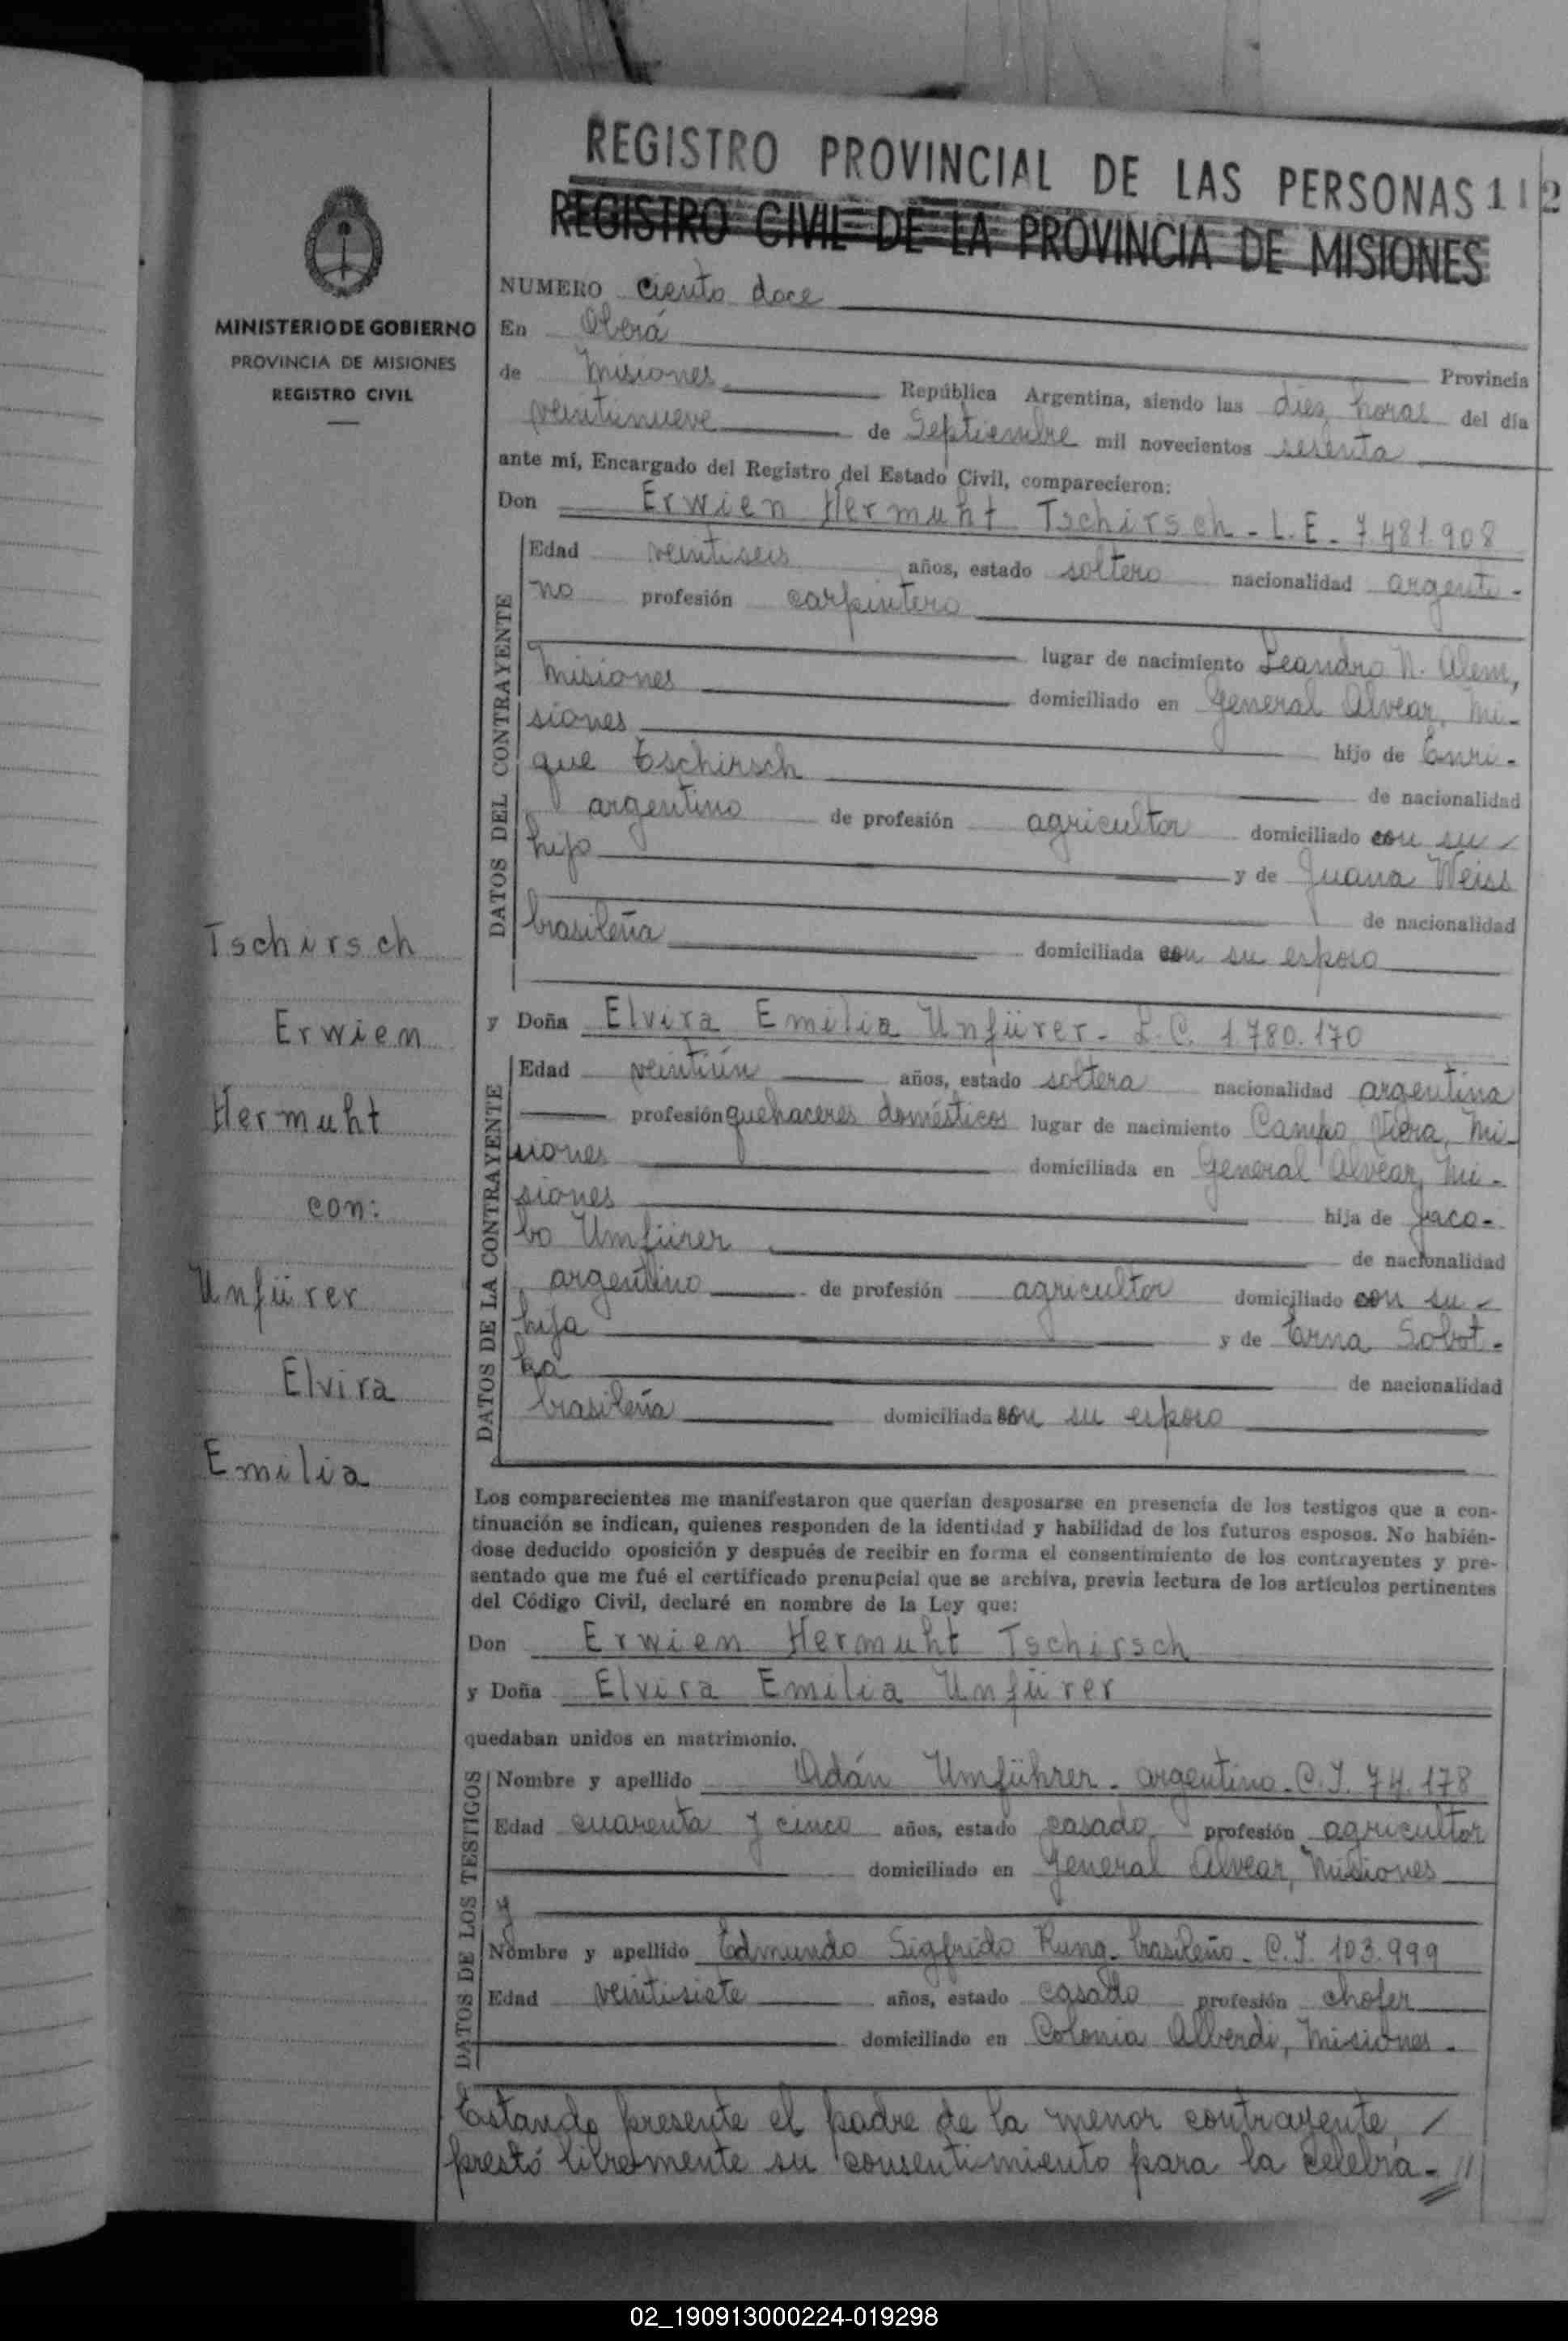 REGISTRO PROVINCIAL DE LAS PERSONAS 112
REGISTRO CIVIL DE LA PROVINCIA DE MISIONES
MINISTERIO DE GOBIERNO
PROVINCIA DE MISIONES
REGISTRO CIVIL
Tschirsch
Erwien
Hermuht
con:
Unfürer
Elvira
Emilia
NUMERO ciento doce
En Oberá
de Misiones Provincia
República Argentina, siendo las diez horas del día
veintinueve de Septiembre mil novecientos sesenta
ante mí, Encargado del Registro del Estado Civil, comparecieron:
Don Erwien Hermuht Tschirsch - L.E. 7.481.908
DATOS DEL CONTRAYENTE
Edad veintiseis años, estado soltero nacionalidad argenti-
no profesión carpintero
lugar de nacimiento Leandro N. Alem,
Misiones domiciliado en General Alvear, Mi-
siones hijo de Enri-
que Tschirsch de nacionalidad
argentino de profesión agricultor domiciliado con su
hijo y de Juana Weiss
de nacionalidad
brasileña domiciliada con su esposo
y Doña Elvira Emilia Unfürer - L.C. 1.780.170
DATOS DE LA CONTRAYENTE
Edad veintiún años, estado soltera nacionalidad argentina
profesión quehaceres domésticos lugar de nacimiento Campo Viera, Mi-
siones domiciliada en General Alvear, Mi-
siones hija de Jaco-
bo Umfürer de nacionalidad
argentino de profesión agricultor domiciliado con su
hija y de Erna Sobot-
ka de nacionalidad
brasileña domiciliada con su esposo
Los comparecientes me manifestaron que querían desposarse en presencia de los testigos que a con-
tinuación se indican, quienes responden de la identidad y habilidad de los futuros esposos. No habién-
dose deducido oposición y después de recibir en forma el consentimiento de los contrayentes y pre-
sentado que me fué el certificado prenupcial que se archiva, previa lectura de los artículos pertinentes
del Código Civil, declaré en nombre de la Ley que:
Don Erwien Hermuht Tschirsch
y Doña Elvira Emilia Unfürer
quedaban unidos en matrimonio.
DATOS DE LOS TESTIGOS
Nombre y apellido Adán Umführer - argentino - C.I. 74.178
Edad cuarenta y cinco años, estado casado profesión agricultor
domiciliado en General Alvear, Misiones
y
Nombre y apellido Edmundo Sigfrido Kung - brasileño - C.I. 103.999
Edad veintisiete años, estado casado profesión chofer
domiciliado en Colonia Alberdi, Misiones.
Estando presente el padre de la menor contrayente,
prestó libremente su consentimiento para la celebra-//
02_190913000224-019298